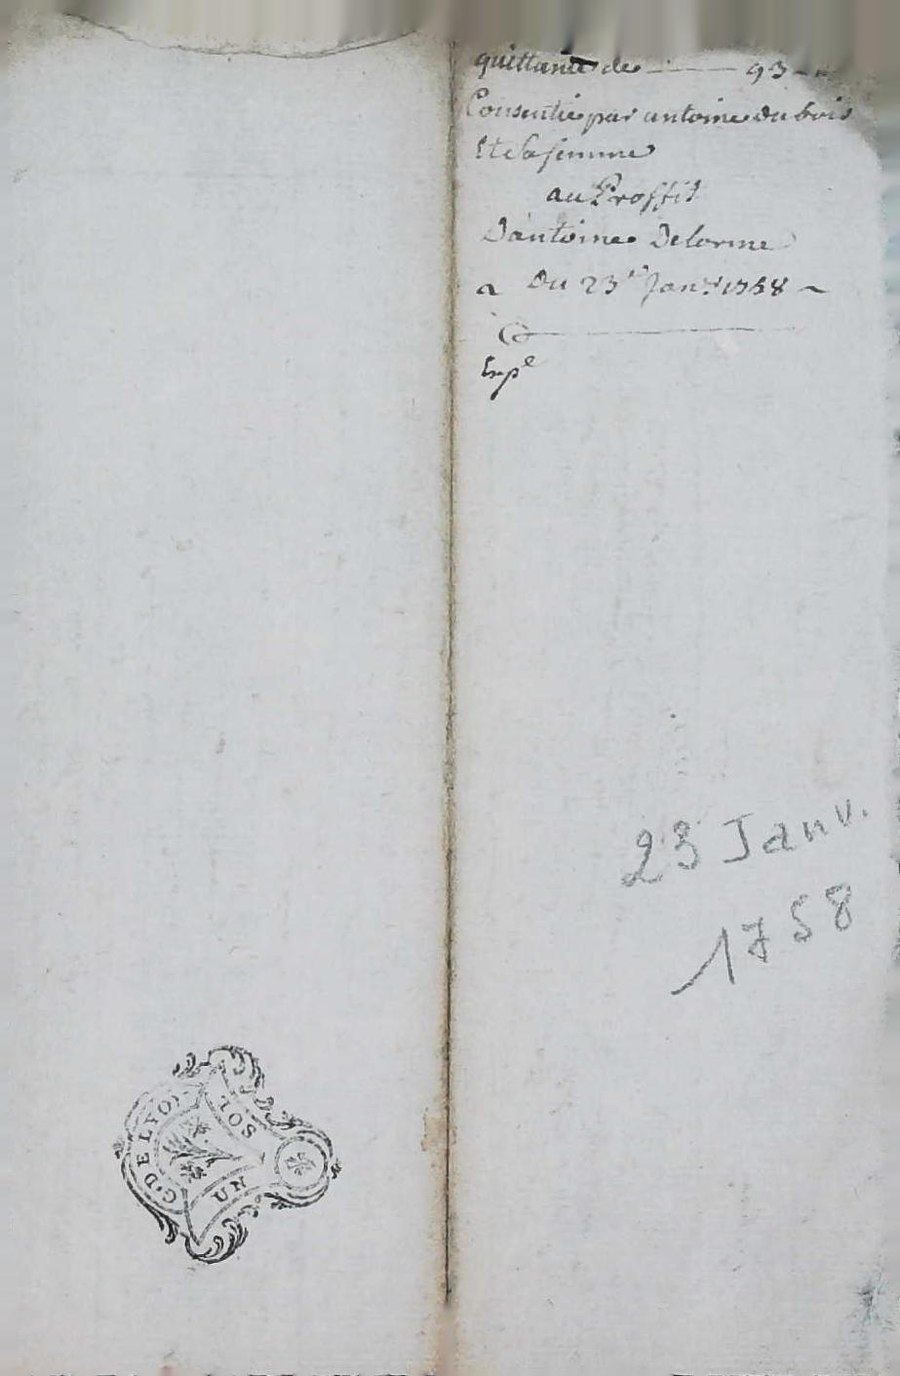 quittance de ——— 93 ~ "
Consentie par antoine du bois
Et sa femme
au Proffit
Dantoine Delorme
a Du 23e Janvr 1758 ~
Expe
23 Janv.
1758
G. DE LYON
UN
SOL